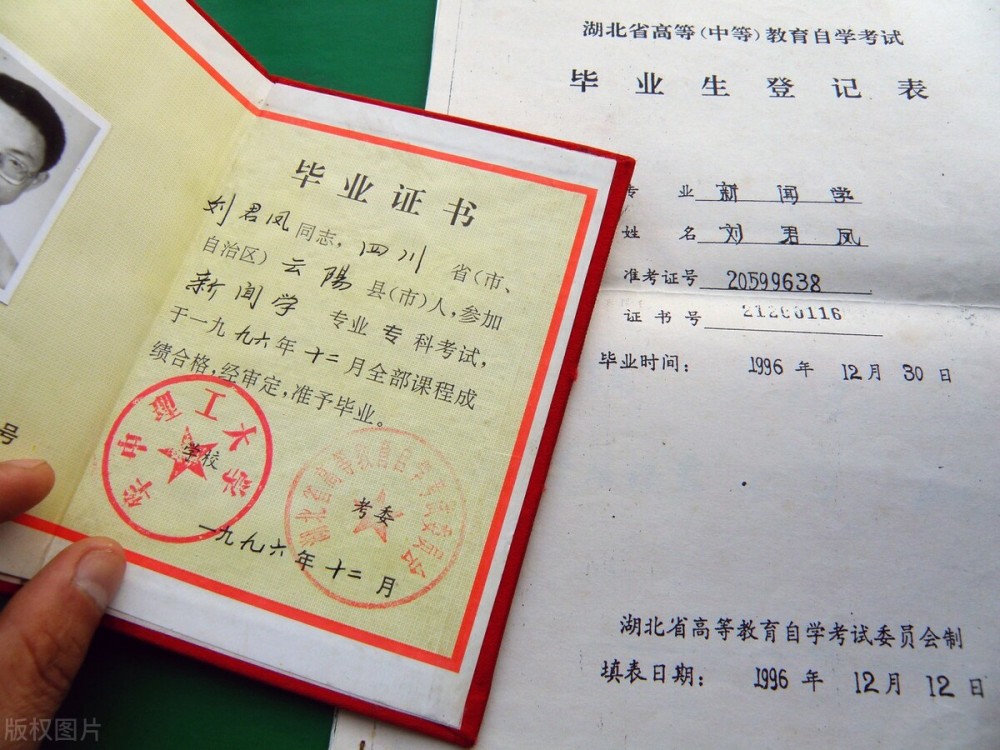 毕业证书
刘君凤同志，四川省（市、
自治区）云陽县（市）人，参加
新闻学专业专科考试，
于一九九六年十二月全部课程成
绩合格，经审定，准予毕业。
华中理工大学
学校
湖北省高等教育自学考试委员会
考委
一九九六年十二月
号
湖北省高等（中等）教育自学考试
毕业生登记表
专业 新闻学
姓名 刘君凤
准考证号 20599638
证书号
毕业时间： 1996年12月30日
湖北省高等教育自学考试委员会制
填表日期： 1996年12月12日
版权图片